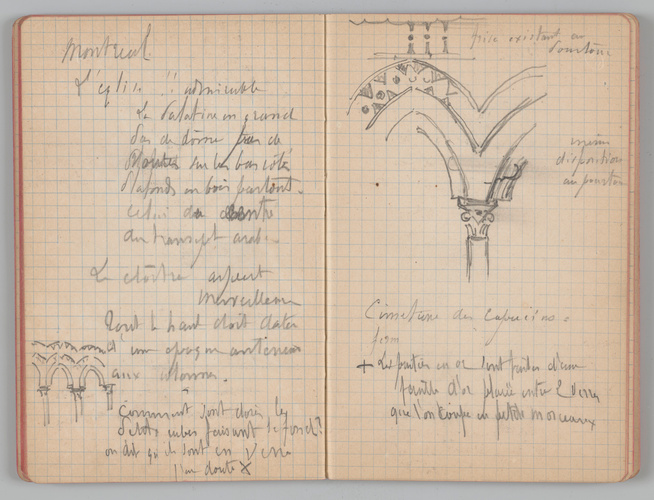 Montreal.
L'église !! admirable
La Palatine en grand
Pas de dôme pas de
sur les bas côtés
Plafonds en bois partout.
celui du centre
du transept arabe.
Le cloître aspect
merveilleux
Tout le haut doit dater
d'une époque antérieure
aux colonnes.
Comment sont dorés les
petits cubes faisant le fond?
on dit qu'ils sont en verre
j'en doute X
frise existant au
pourtour
même
disposition
au pourtour
Cimetière des Capucins.
+ Les parties en or sont faites d'une
feuille d'or placée entre 2 verres
que l'on coupe en petits morceaux